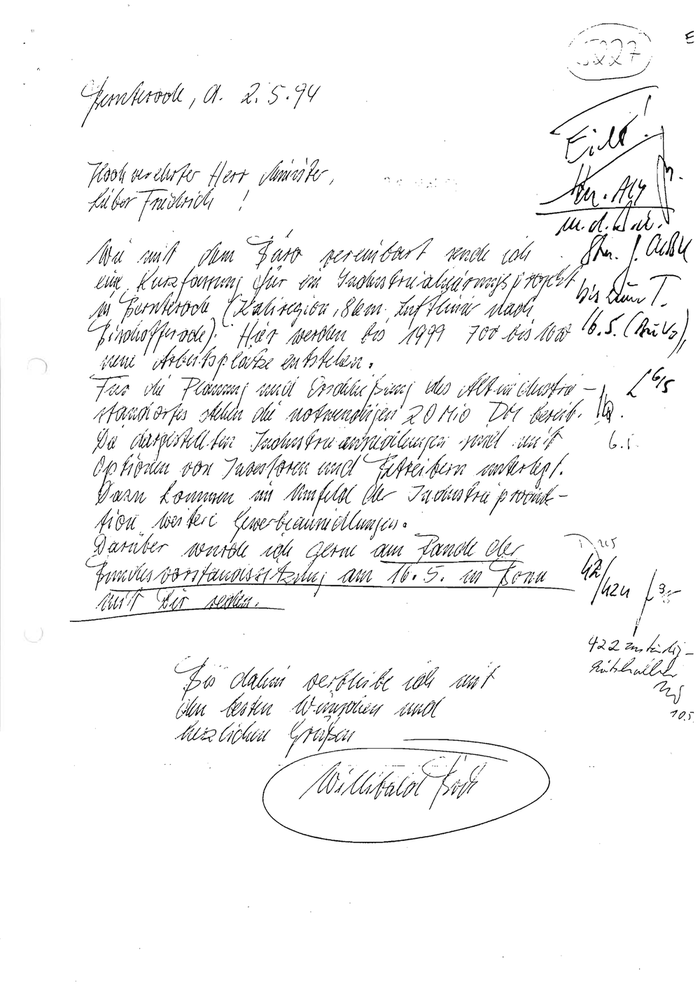 5227
E
Bernterode, d. 2.5.94
Eilt!
Hochverehrter Herr Minister,
lieber Friedrich !
Wie mit dem Büro vereinbart sende ich
eine Kurzfassung für ein Industrialisierungsprojekt
in Bernterode (Kaliregion, 8 km Luftlinie nach
Bischofferode). Hier werden bis 1999 700 bis 1000
neue Arbeitsplätze entstehen.
Für die Planung und Erschließung des Altindustrie-
standortes stehen die notwendigen 20 Mio DM bereit.
Die dargestellten Industrieansiedlungen sind mit
Optionen von Investoren und Betreibern unterlegt.
Dazu kommen im Umfeld der Industrieproduk-
tion weitere Gewerbeansiedlungen.
Darüber würde ich gerne am Rande der
Bundesvorstandssitzung am 16.5. in Bonn
mit Dir reden.
Hn. AL4
m.d.B.u.
bis zum T.
16.5. (BuVo)
6/5
42/421
422 zuständig-
10.5.
Bis dahin verbleibe ich mit
den besten Wünschen und
herzlichen Grüßen
Willibald Böck